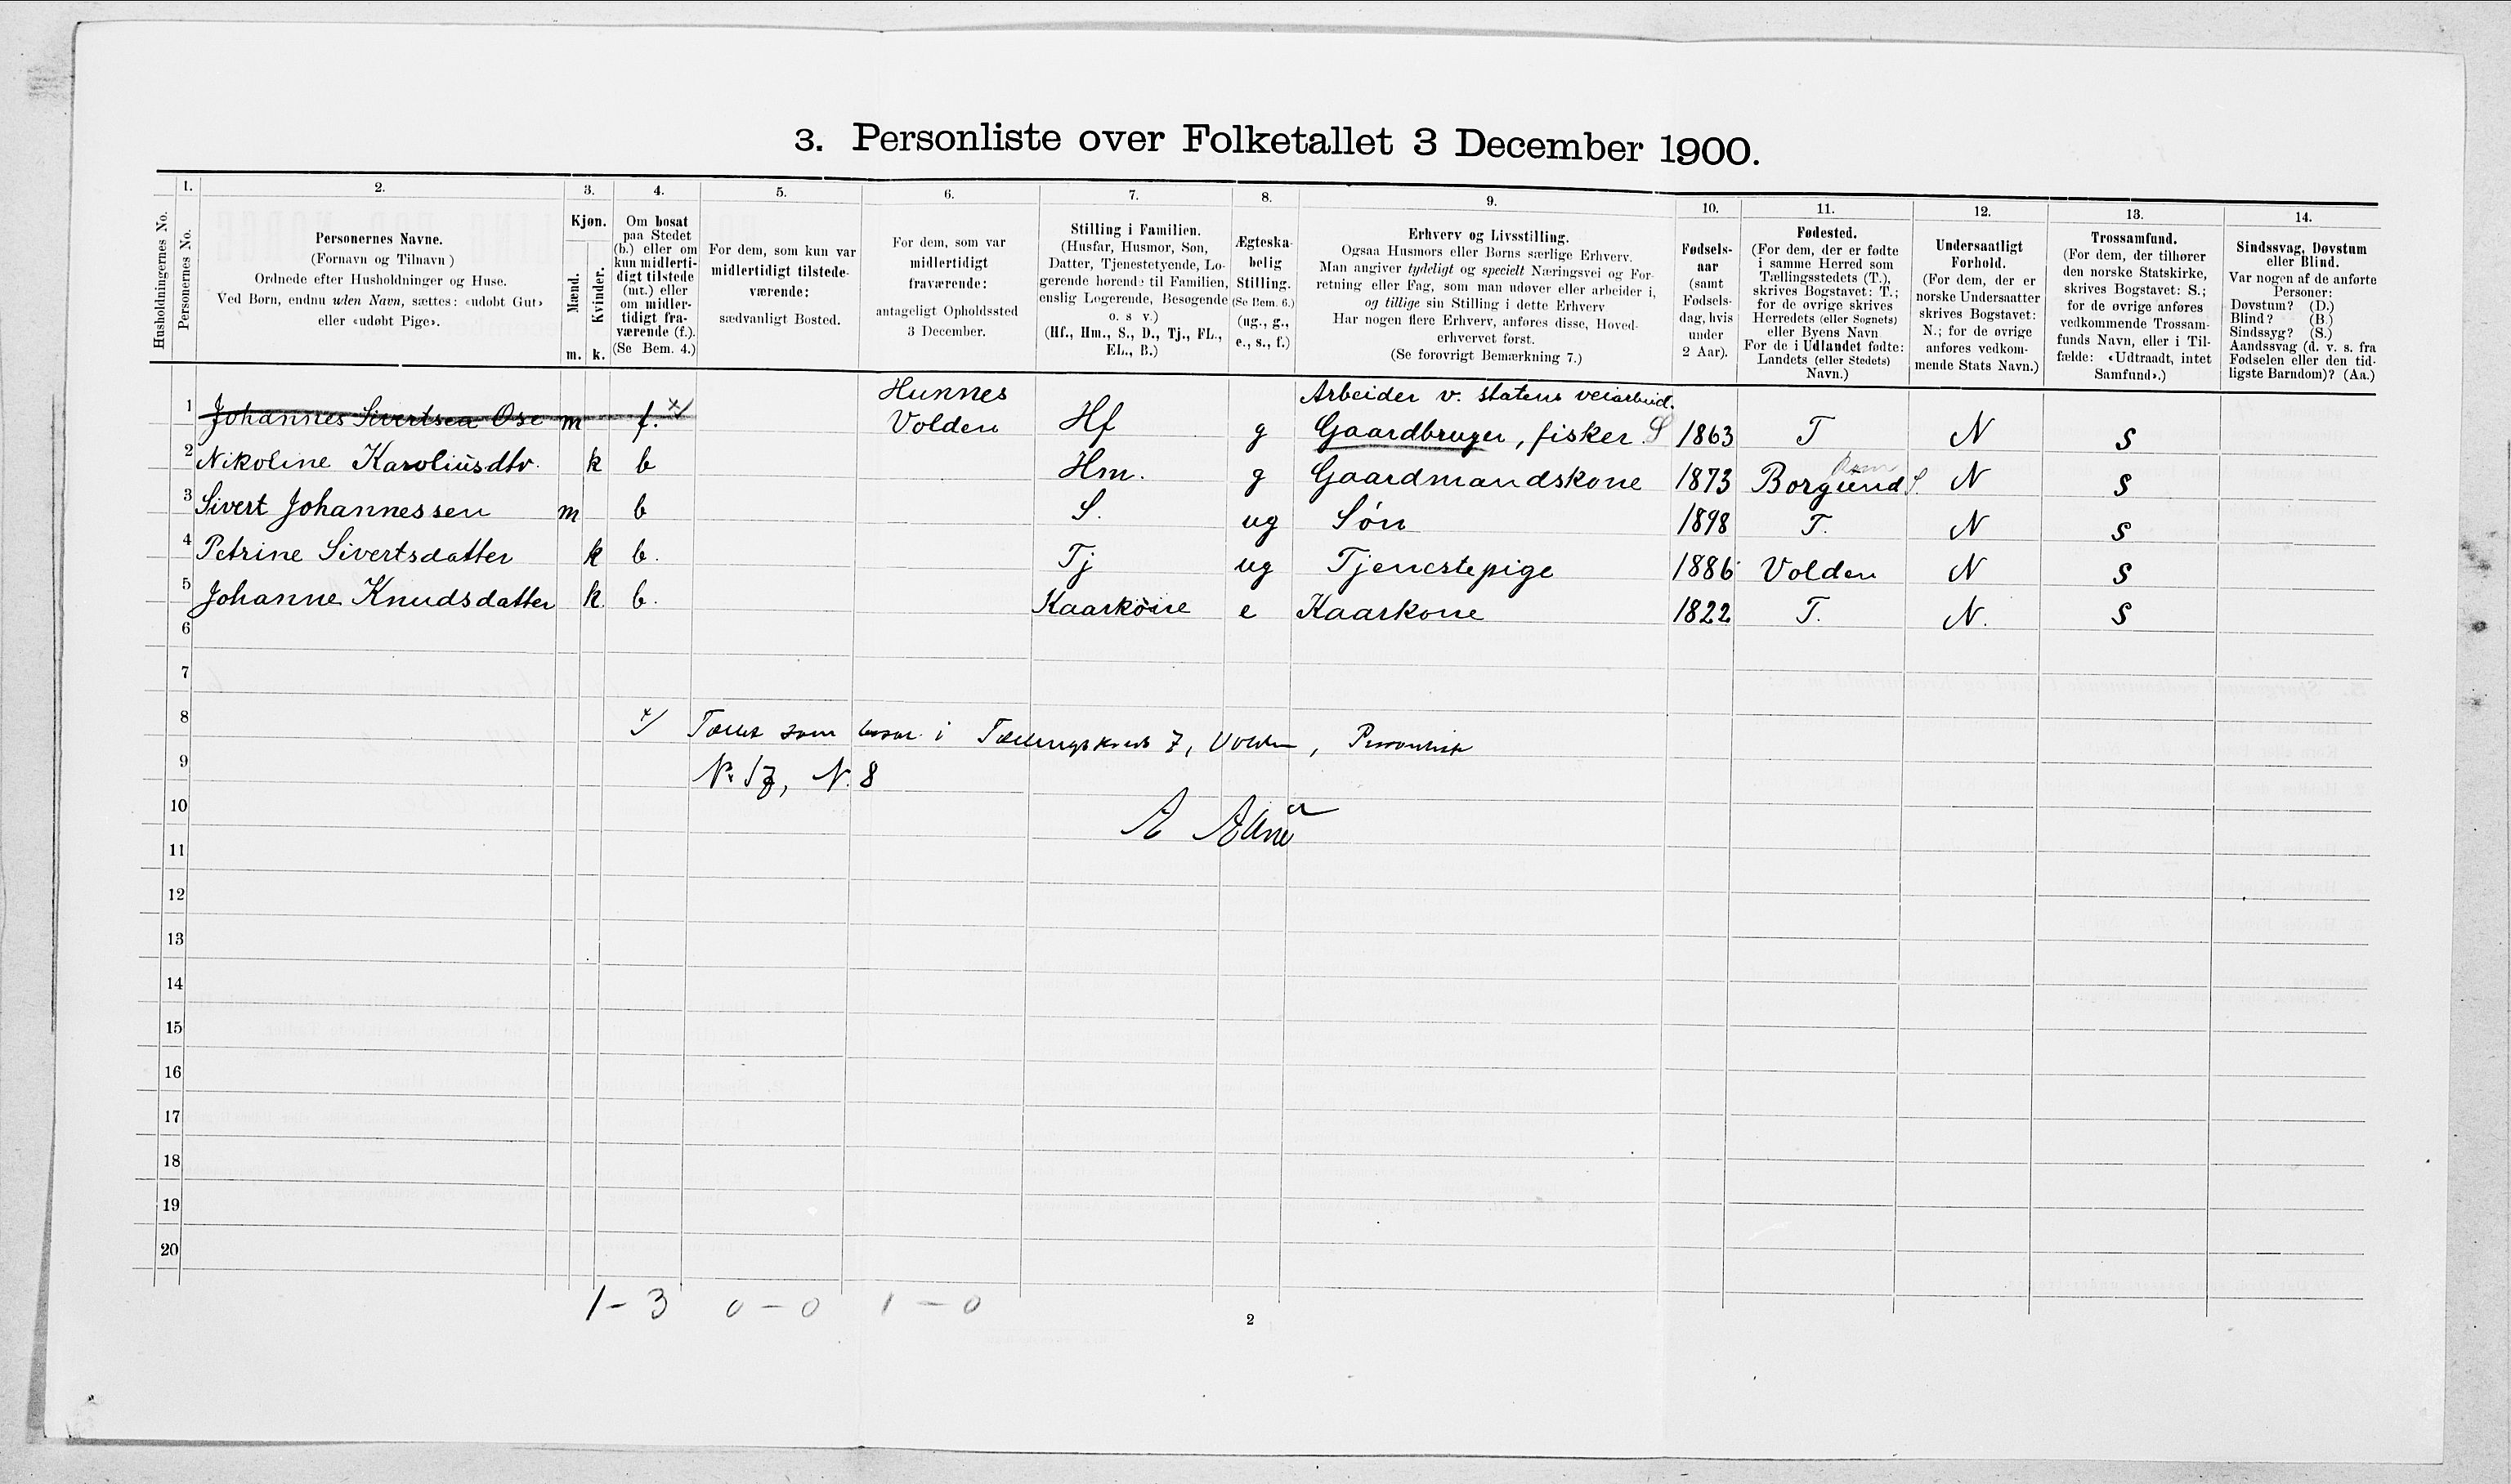 3. Personliste over Folketallet 3 December 1900.
Husholdningernes No.
1.
Personernes No.
2.
Personernes Navne.
(Fornavn og Tilnavn)
Ordnede efter Husholdninger og Huse.
Ved Børn, endnu uden Navn, sættes: «udøbt Gut»
eller «udøbt Pige».
3.
Kjøn.
Mænd.
Kvinder.
m. k.
4.
Om bosat
paa Stedet
(b.) eller om
kun midlerti-
digt tilstede
(mt.) eller
om midler-
tidigt fra-
værende (f.).
(Se Bem. 4.)
5.
For dem, som kun var
midlertidigt tilstede-
værende:
sædvanligt Bosted.
6.
For dem, som var
midlertidigt
fraværende:
antageligt Opholdssted
3 December.
7.
Stilling i Familien.
(Husfar, Husmor, Søn,
Datter, Tjenestetyende, Lo-
gerende hørende til Familien,
enslig Logerende, Besøgende
o. s v.)
(Hf., Hm., S., D., Tj., FL.,
EL., B.)
8.
Ægteska-
belig
Stilling.
(Se Bem. 6.)
(ug., g.,
e., s., f.)
9.
Erhverv og Livsstilling.
Ogsaa Husmors eller Børns særlige Erhverv.
Man angiver tydeligt og specielt Næringsvei og For-
retning eller Fag, som man udøver eller arbeider i,
og tillige sin Stilling i dette Erhverv
Har nogen flere Erhverv, anføres disse, Hoved-
erhvervet først.
(Se forøvrigt Bemærkning 7.)
10.
Fødsels-
aar
(samt
Fødsels-
dag, hvis
under
2 Aar).
11.
Fødested.
(For dem, der er fødte
i samme Herred som
Tællingsstedets (T.),
skrives Bogstavet: T.;
for de øvrige skrives
Herredets (eller Sognets)
eller Byens Navn
For de i Udlandet fødte:
Landets (eller Stedets)
Navn.)
12.
Undersaatligt
Forhold.
(For dem, der er
norske Undersaatter
skrives Bogstavet:
N.; for de øvrige
anføres vedkom-
mende Stats Navn.)
13.
Trossamfund.
(For dem, der tilhører
den norske Statskirke,
skrives Bogstavet: S.;
for de øvrige anføres
vedkommende Trossam-
funds Navn, eller i Til-
fælde: «Udtraadt, intet
Samfund».)
14.
Sindssvag, Døvstum
eller Blind.
Var nogen af de anførte
Personer:
Døvstum? (D.)
Blind? (B.)
Sindssyg? (S.)
Aandssvag (d. v. s. fra
Fødselen eller den tid-
ligste Barndom)? (Aa.)
Hunnes Arbeider v. statens veiarbeid.
1 Johannes Sivertsen Ose m f. x/ Volden Hf g Gaardbruger, fisker S 1863 T N S
2 Nikoline Karoliusdtr. k b Hm. g Gaardmandskone 1873 Borgund S. N S
3 Sivert Johannessen m b S. ug Søn 1898 T. N S
4 Petrine Sivertsdatter k b. Tj ug Tjenestepige 1886 Volden N S
5 Johanne Knudsdatter k. b. Kaarkone e Kaarkone 1822 T. N. S
6
7
8
x/ Tællet som bosat i Tællingskreds 7, Volden, Personliste
9
N. 8
10
A
11
12
13
14
15
16
17
18
19
20
1 - 3 0 - 0 1 - 0
2